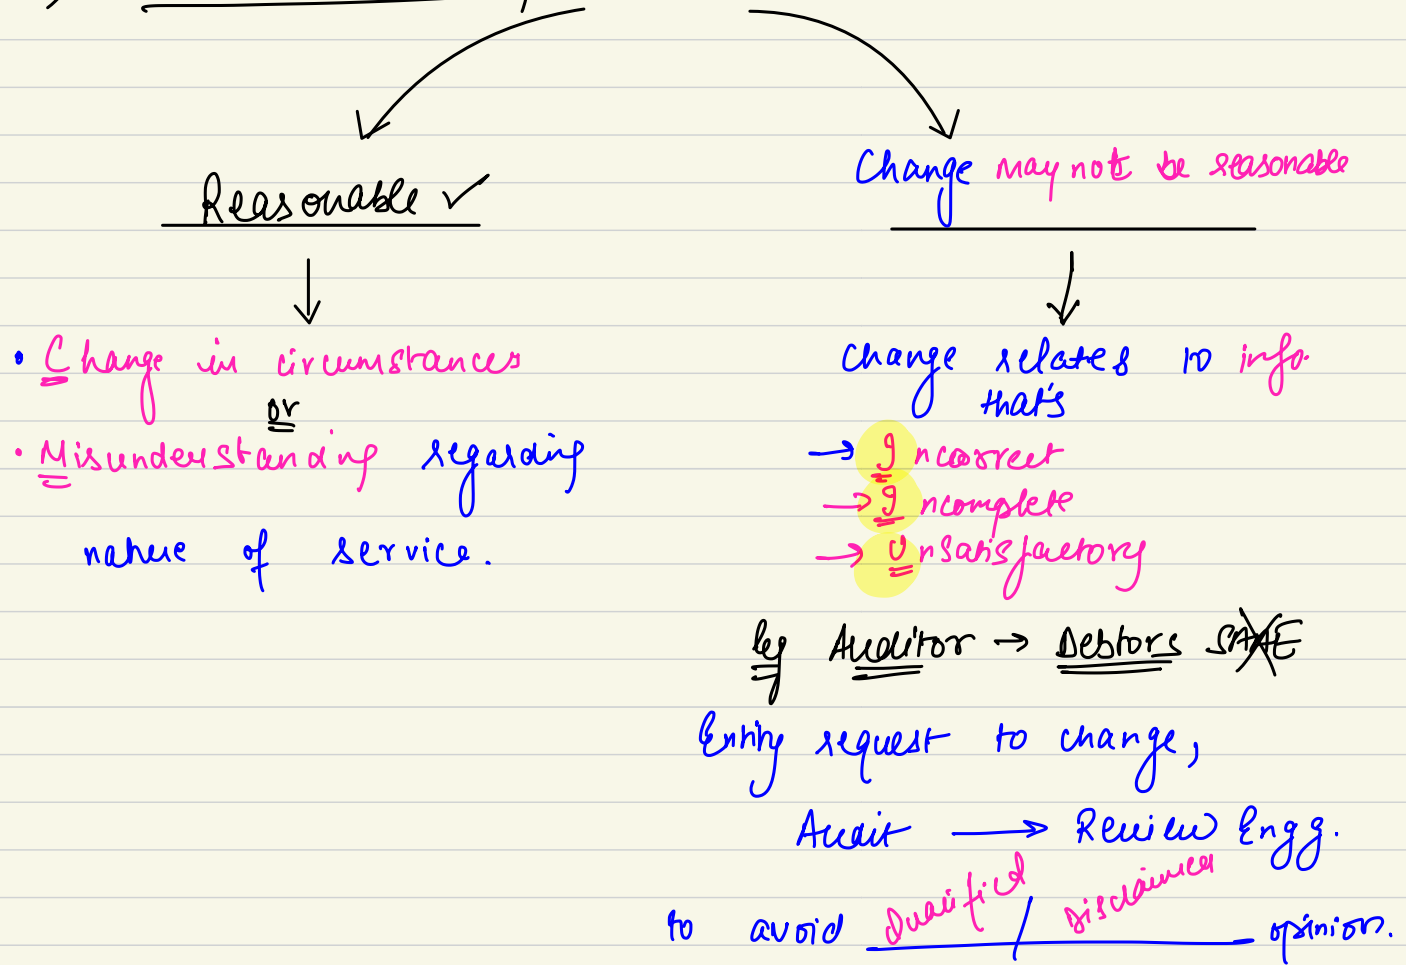 Reasonable ✓
• Change in circumstances
or
• Misunderstanding regarding
nature of service.
Change may not be reasonable
Change relates to info.
that's
→ Incorrect
→ Incomplete
→ Unsatisfactory
eg Auditor → Debtors SAAE
Entity request to change,
Audit → Review Engg.
to avoid Qualified / Disclaimer opinion.